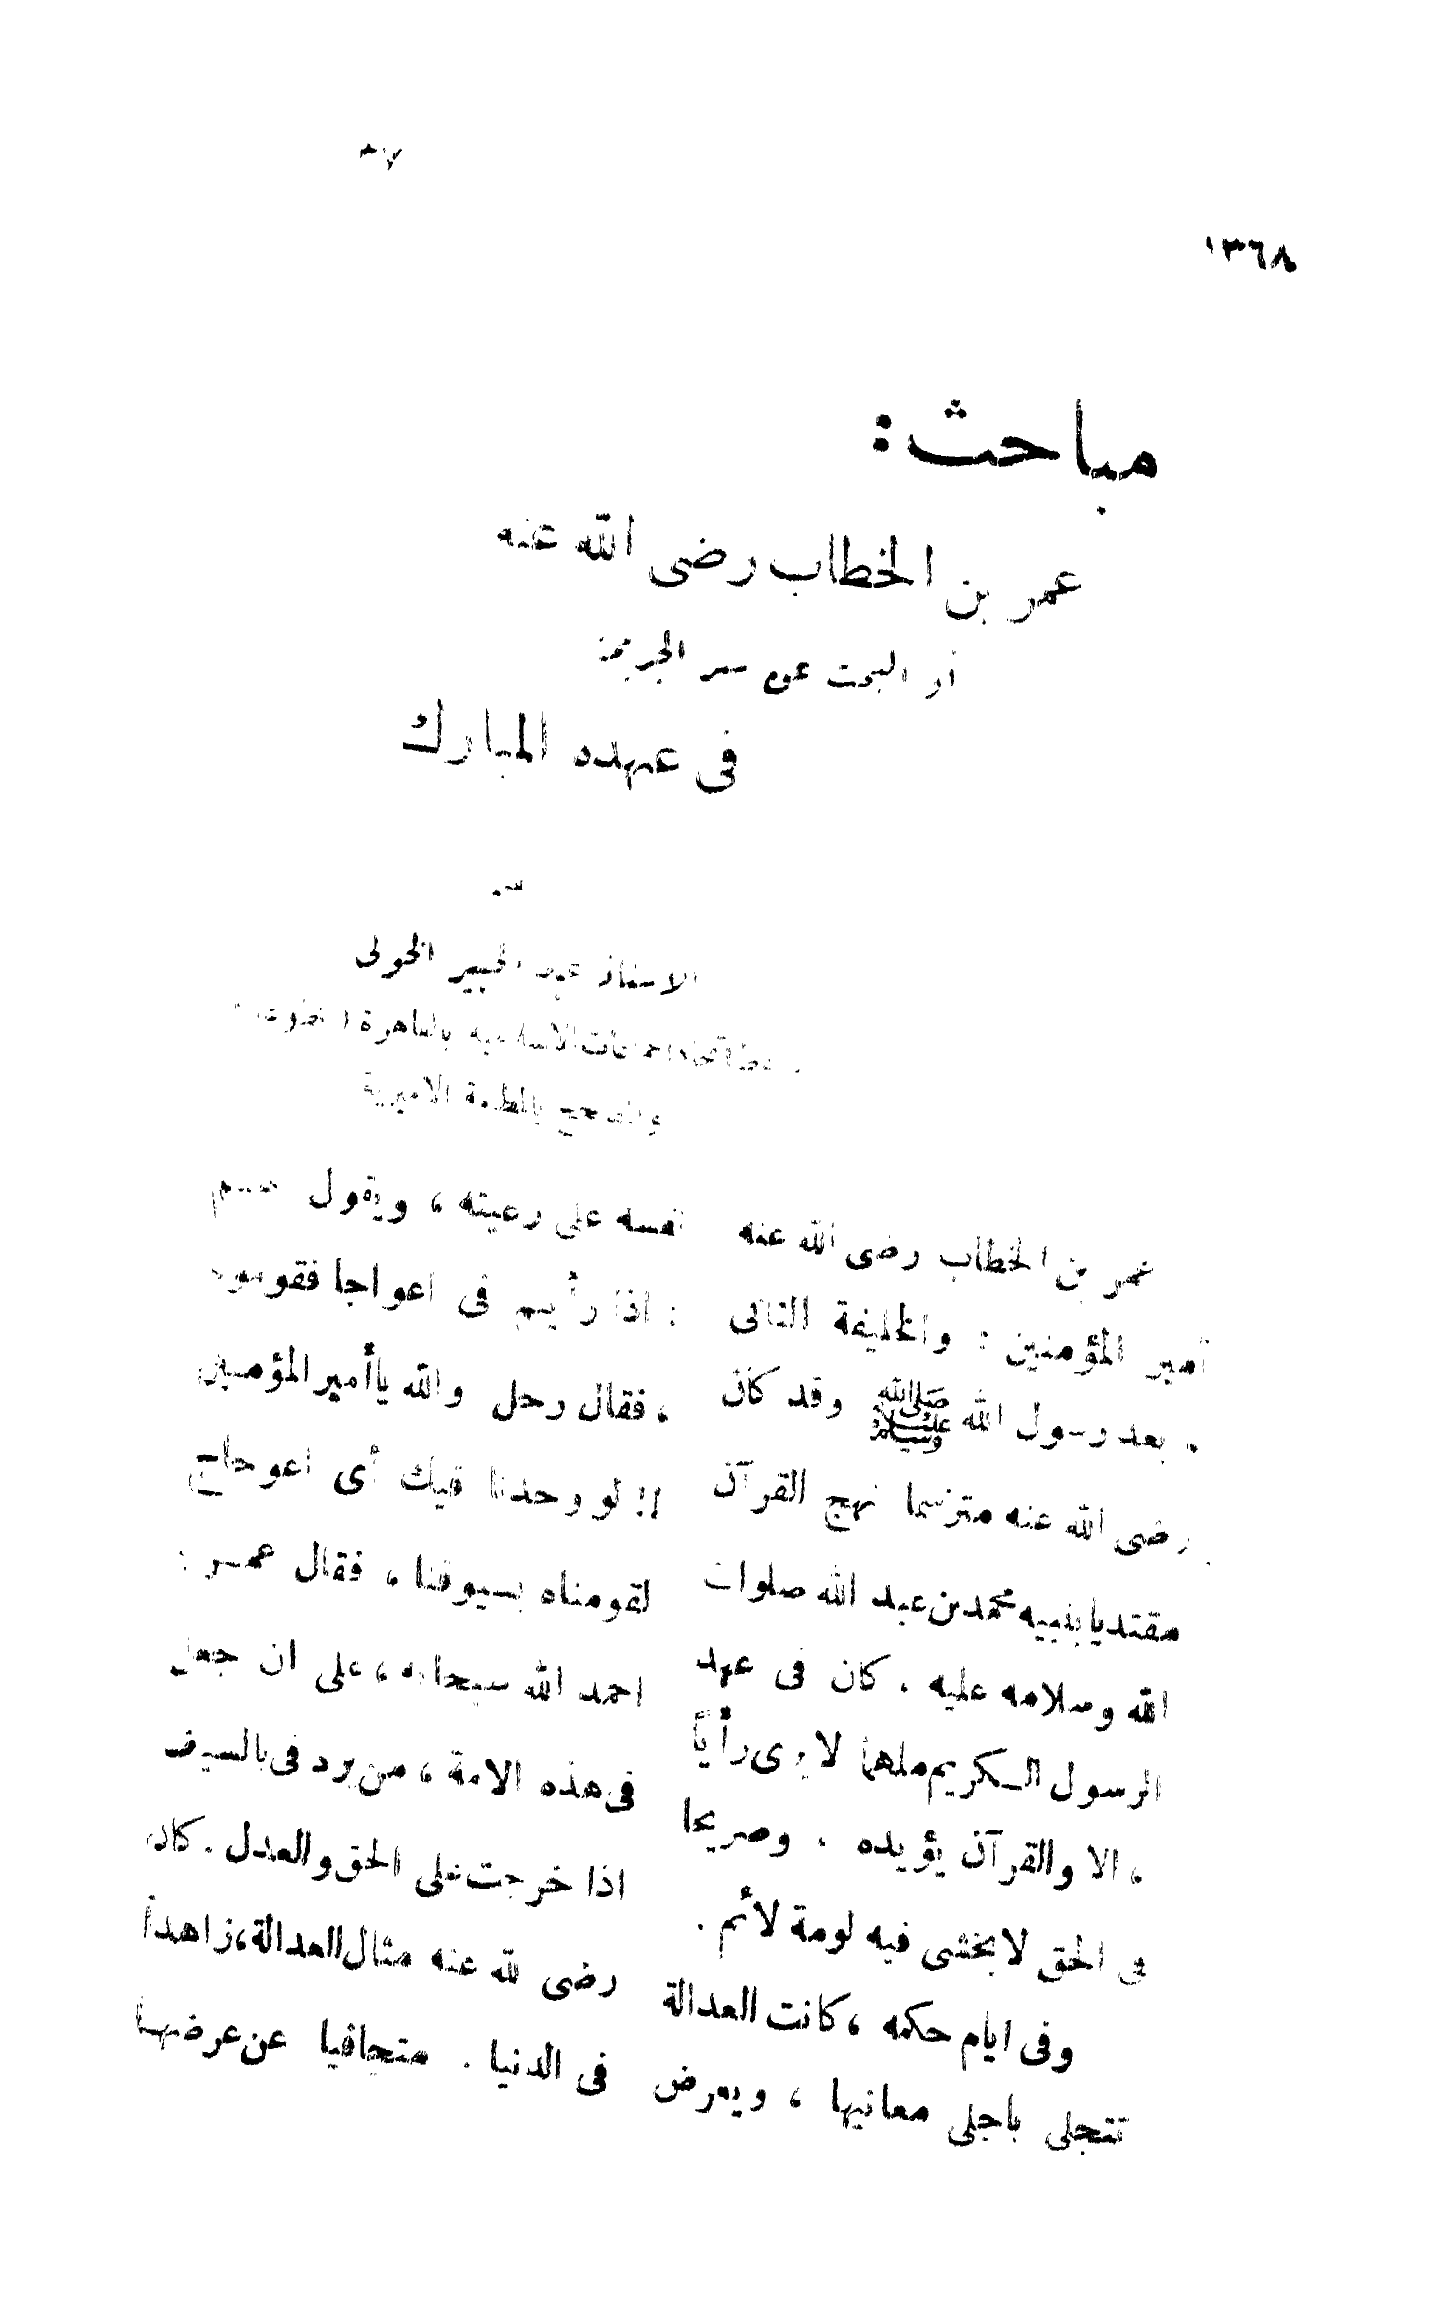 ١٣٦٨
مباحث :
عمر بن الخطاب رضى الله عنه
أو البحث عن سر الجريمة
فى عهده المبارك
الاستاذ عبد الخبير الخولى
بالقاهرة
بالمطبعة الاميرية
عمر بن الخطاب رضى الله عنه
أمير المؤمنين : والخليفة الثانى
. بعد رسول الله ﷺ وقد كان
رضى الله عنه مترسما نهج القرآن
مقتديا بنبيه محمد بن عبد الله صلوات
الله وسلامه عليه . كان فى عهد
الرسول الكريم ملهما لا يرى رأياً
، الا والقرآن يؤيده . وصريحا
فى الحق لا يخشى فيه لومة لائم .
وفى ايام حكمه ، كانت العدالة
تتجلى باجلى معانيها ، ويعرض
نفسه على رعيته ، ويقول
: اذا رأيتم فى اعواجا فقومونى
، فقال رجل والله ياأمير المؤمنين
لو وجدنا فيك أى اعوجاج
لقومناه بسيوفنا ، فقال عمر :
احمد الله سبحانه ، على ان جعل
فى هذه الامة ، من يرد فى بالسيف
اذا خرجت على الحق والعدل . كان
رضى لله عنه مثال العدالة ، زاهداً
فى الدنيا . متجافيا عن عرضها